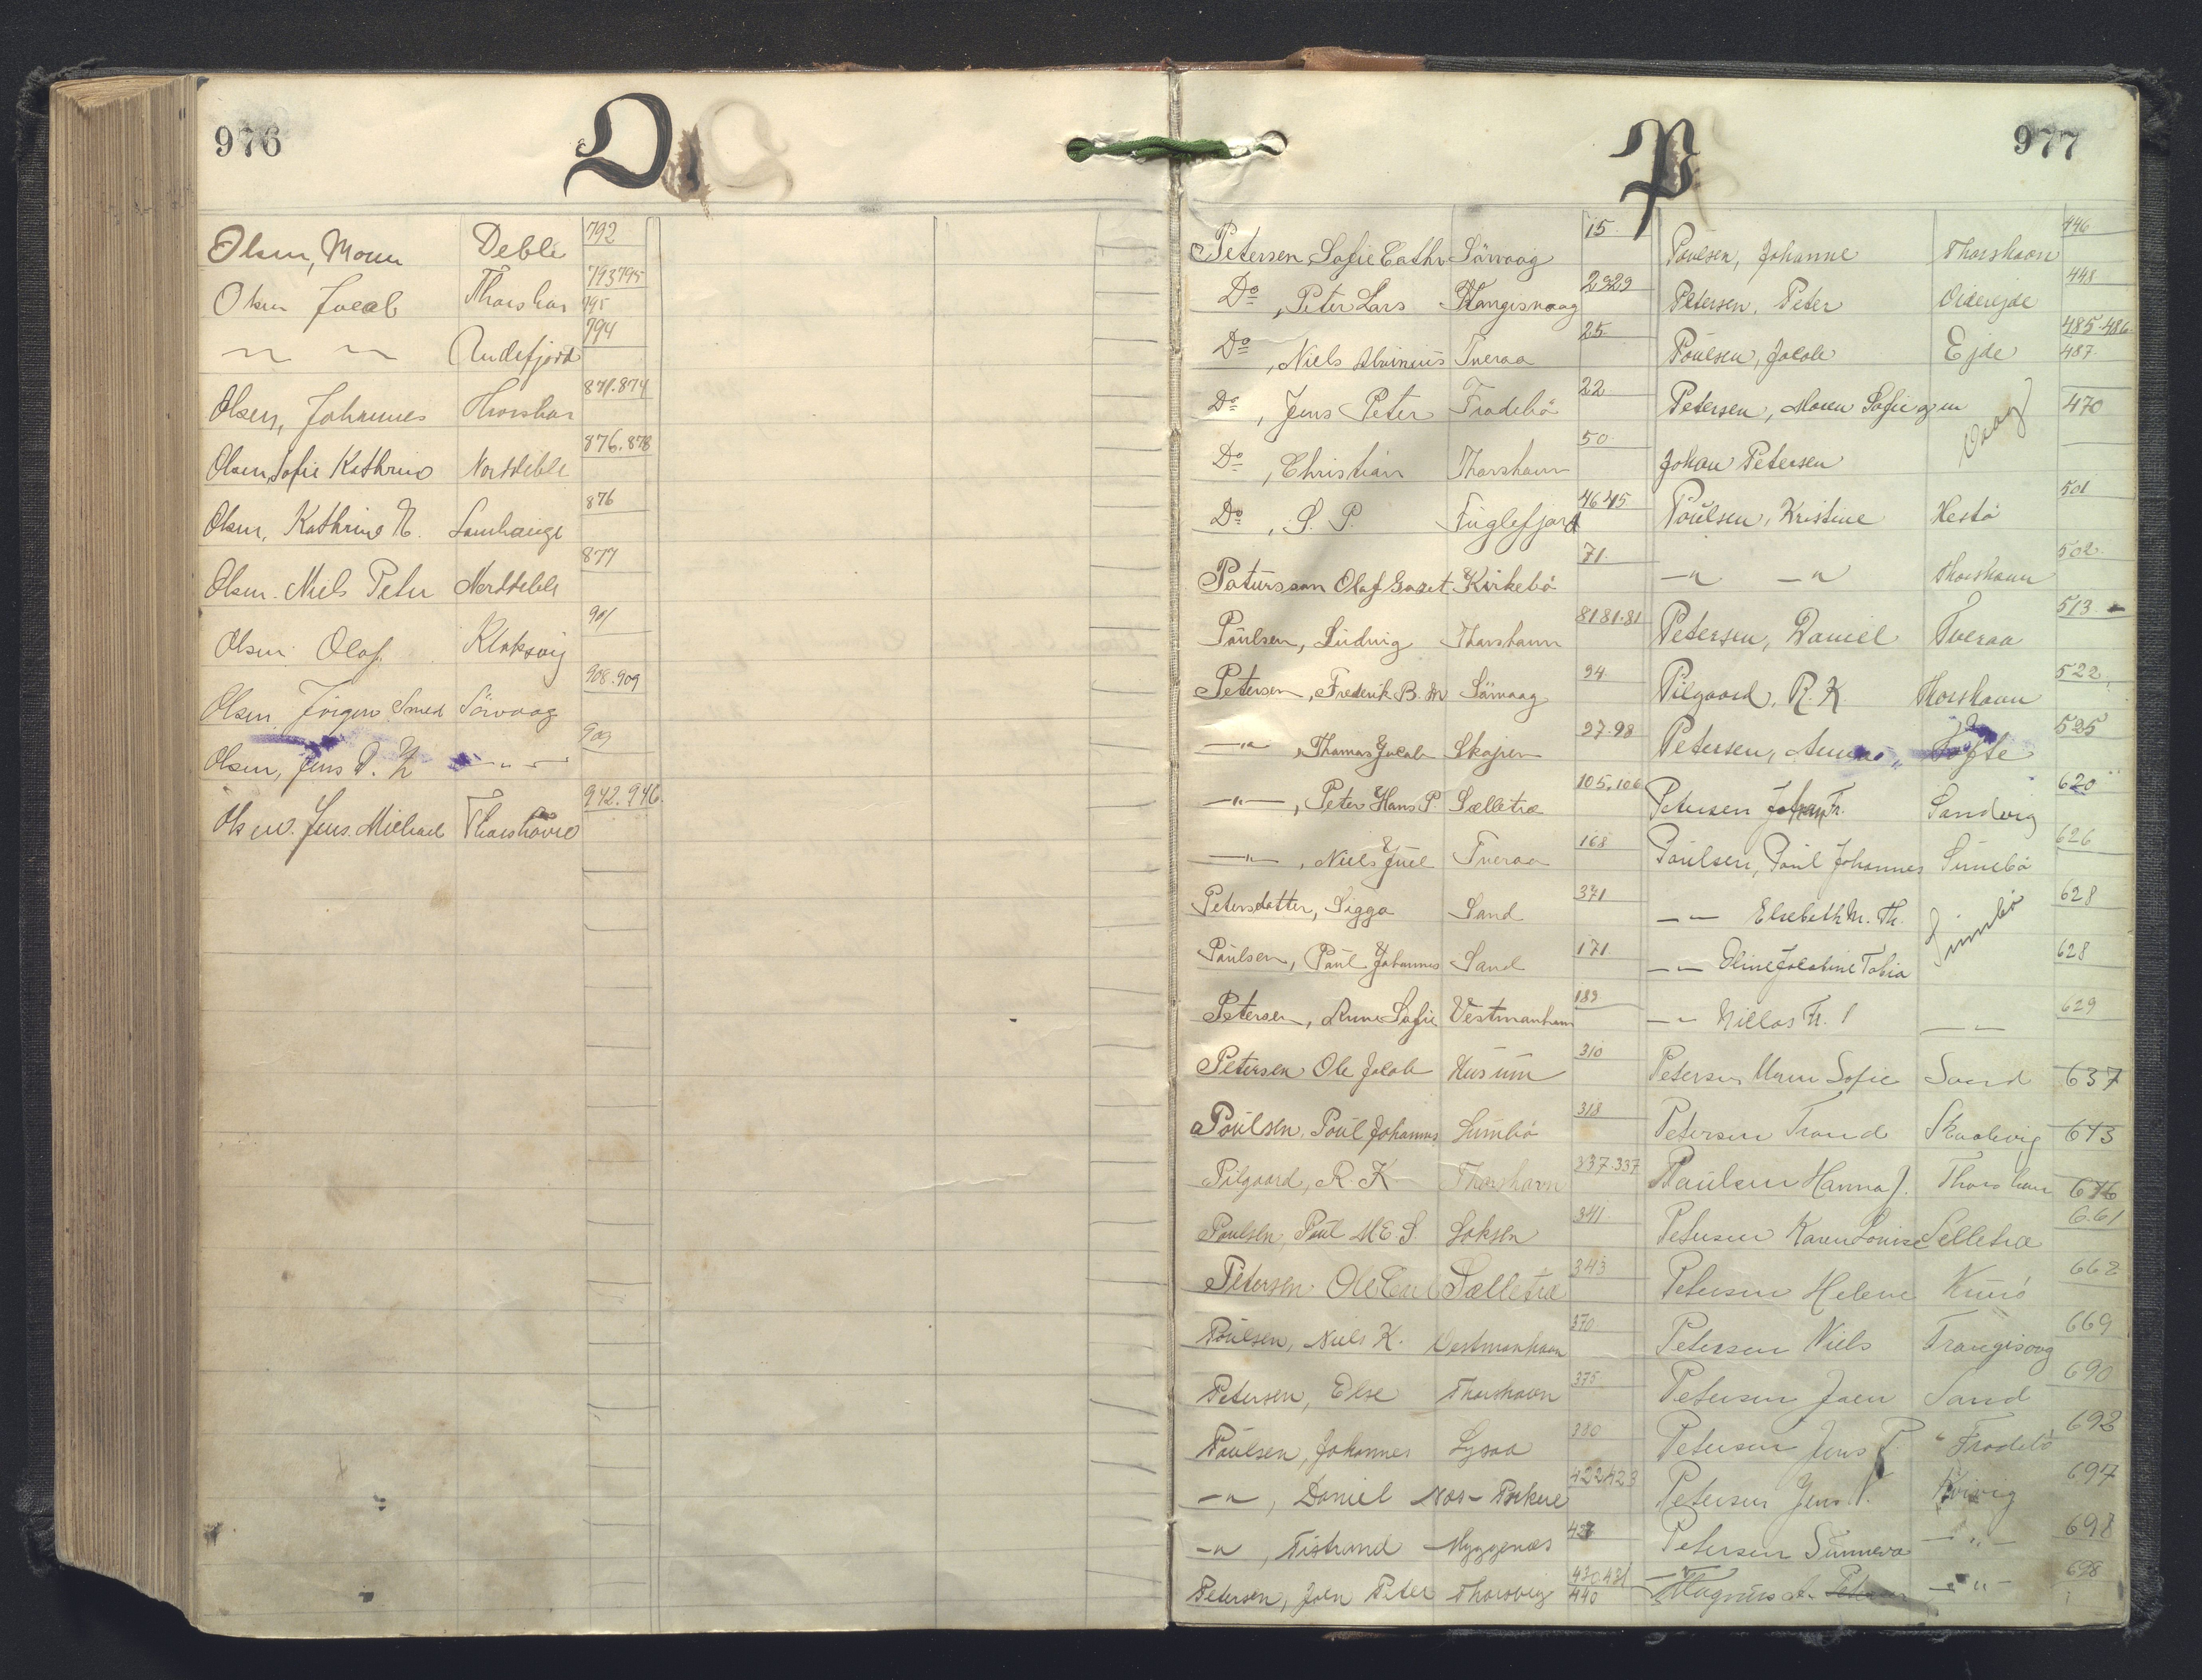 976
O
Olsen, Monn Deble 792
Olsen Jacob Thorshav 793 795
795
" " Andefjord 794
Olsen, Johannes Thorshav 871.874
Olsen, Sofie Kathrine Norddeble 876.878
Olsen, Kathrine N. Lamhauge 876
Olsen. Niels Peter Norddeble 877
Olsen Olaf. Klaksvig 901
Olsen Jörgen Smed Sörvaag 908.909
Olsen, Jens P. N — " — 909
Olsen. Jens. Michael Thorshavn 942.946.
977
P
Petersen Sofie Cathr Sörvaag 15
Do, Peter Lars Trangisvaag 29 29
Do, Niels Tveraa 25
Do, Jens Peter Frodebö 22
Do, Christian Thorshavn 50
Do, S. P. Fuglefjord 46 45
Patursson Olaf Gazet Kirkebö 71.
Poulsen, Ludvig Thorshavn 81 81.81
Petersen, Frederik B. M Sörvaag 94
—"—, Thomas Jacob Skopen 97.98
—"—, Peter Hans P. Selletræ 105.106
—"—, Niels Juel Tveraa 168
Petersdatter, Sigga Sand 371
Poulsen, Poul Johannes Sand 171
Petersen, Anne Sofie Vestmanhavn 189
Petersen Ole Jacob Husum 310
Poulsen, Poul Johannes Sumbö 318
Pilgaard, R. K Thorshavn 337.337
Poulsen, Poul M.E.S. Soksen 341
Petersen Ole Carl Selletræ 343
Poulsen, Niels K. Vestmanhavn 370
Petersen, Else Thorshavn 375
Poulsen, Johannes Lysaa 380
—"—, Daniel Nos-Porkere 422 423
—", Tistrand Myggenæs 437
Petersen, Joen Peter Thorsvig 430 431
440
Poulsen, Johanne Thorshavn 446
Petersen, Peter Videreide 448
Poulsen, Jacob Ejde 485-486
487
Petersen, Maren Sofie gen Vaag 470
Johan Petersen
Poulsen, Kristine Hestö 501
—" —" Thorshavn 502
Petersen, Daniel Tveraa 513
Pilgaard, R. K Thorshavn 522
Petersen, Tofte 525
Petersen Johan Fr. Sandvig 620
Poulsen, Poul Johannes Sumbö 626
— — Elsebeth M. Th. Sumbö 628
— — Eline Jacobine Tobia 628
— — Niclas Fr. — — 629
Petersen Maren Sofie Sand 637
Petersen Trond Skaalevig 643
Paulsen Hanna J. Thorshavn 646
Petersen Karen Louise Selletræ 661
Petersen Helene Kunö 662
Petersen Niels Trangisvaag 669
Petersen Joen Sand 690
Petersen Jens P. Frodebö 692
Petersen Jens P. Kvivig 697
Petersen Sunneva — " — 698
—"— Magnus — " — 698